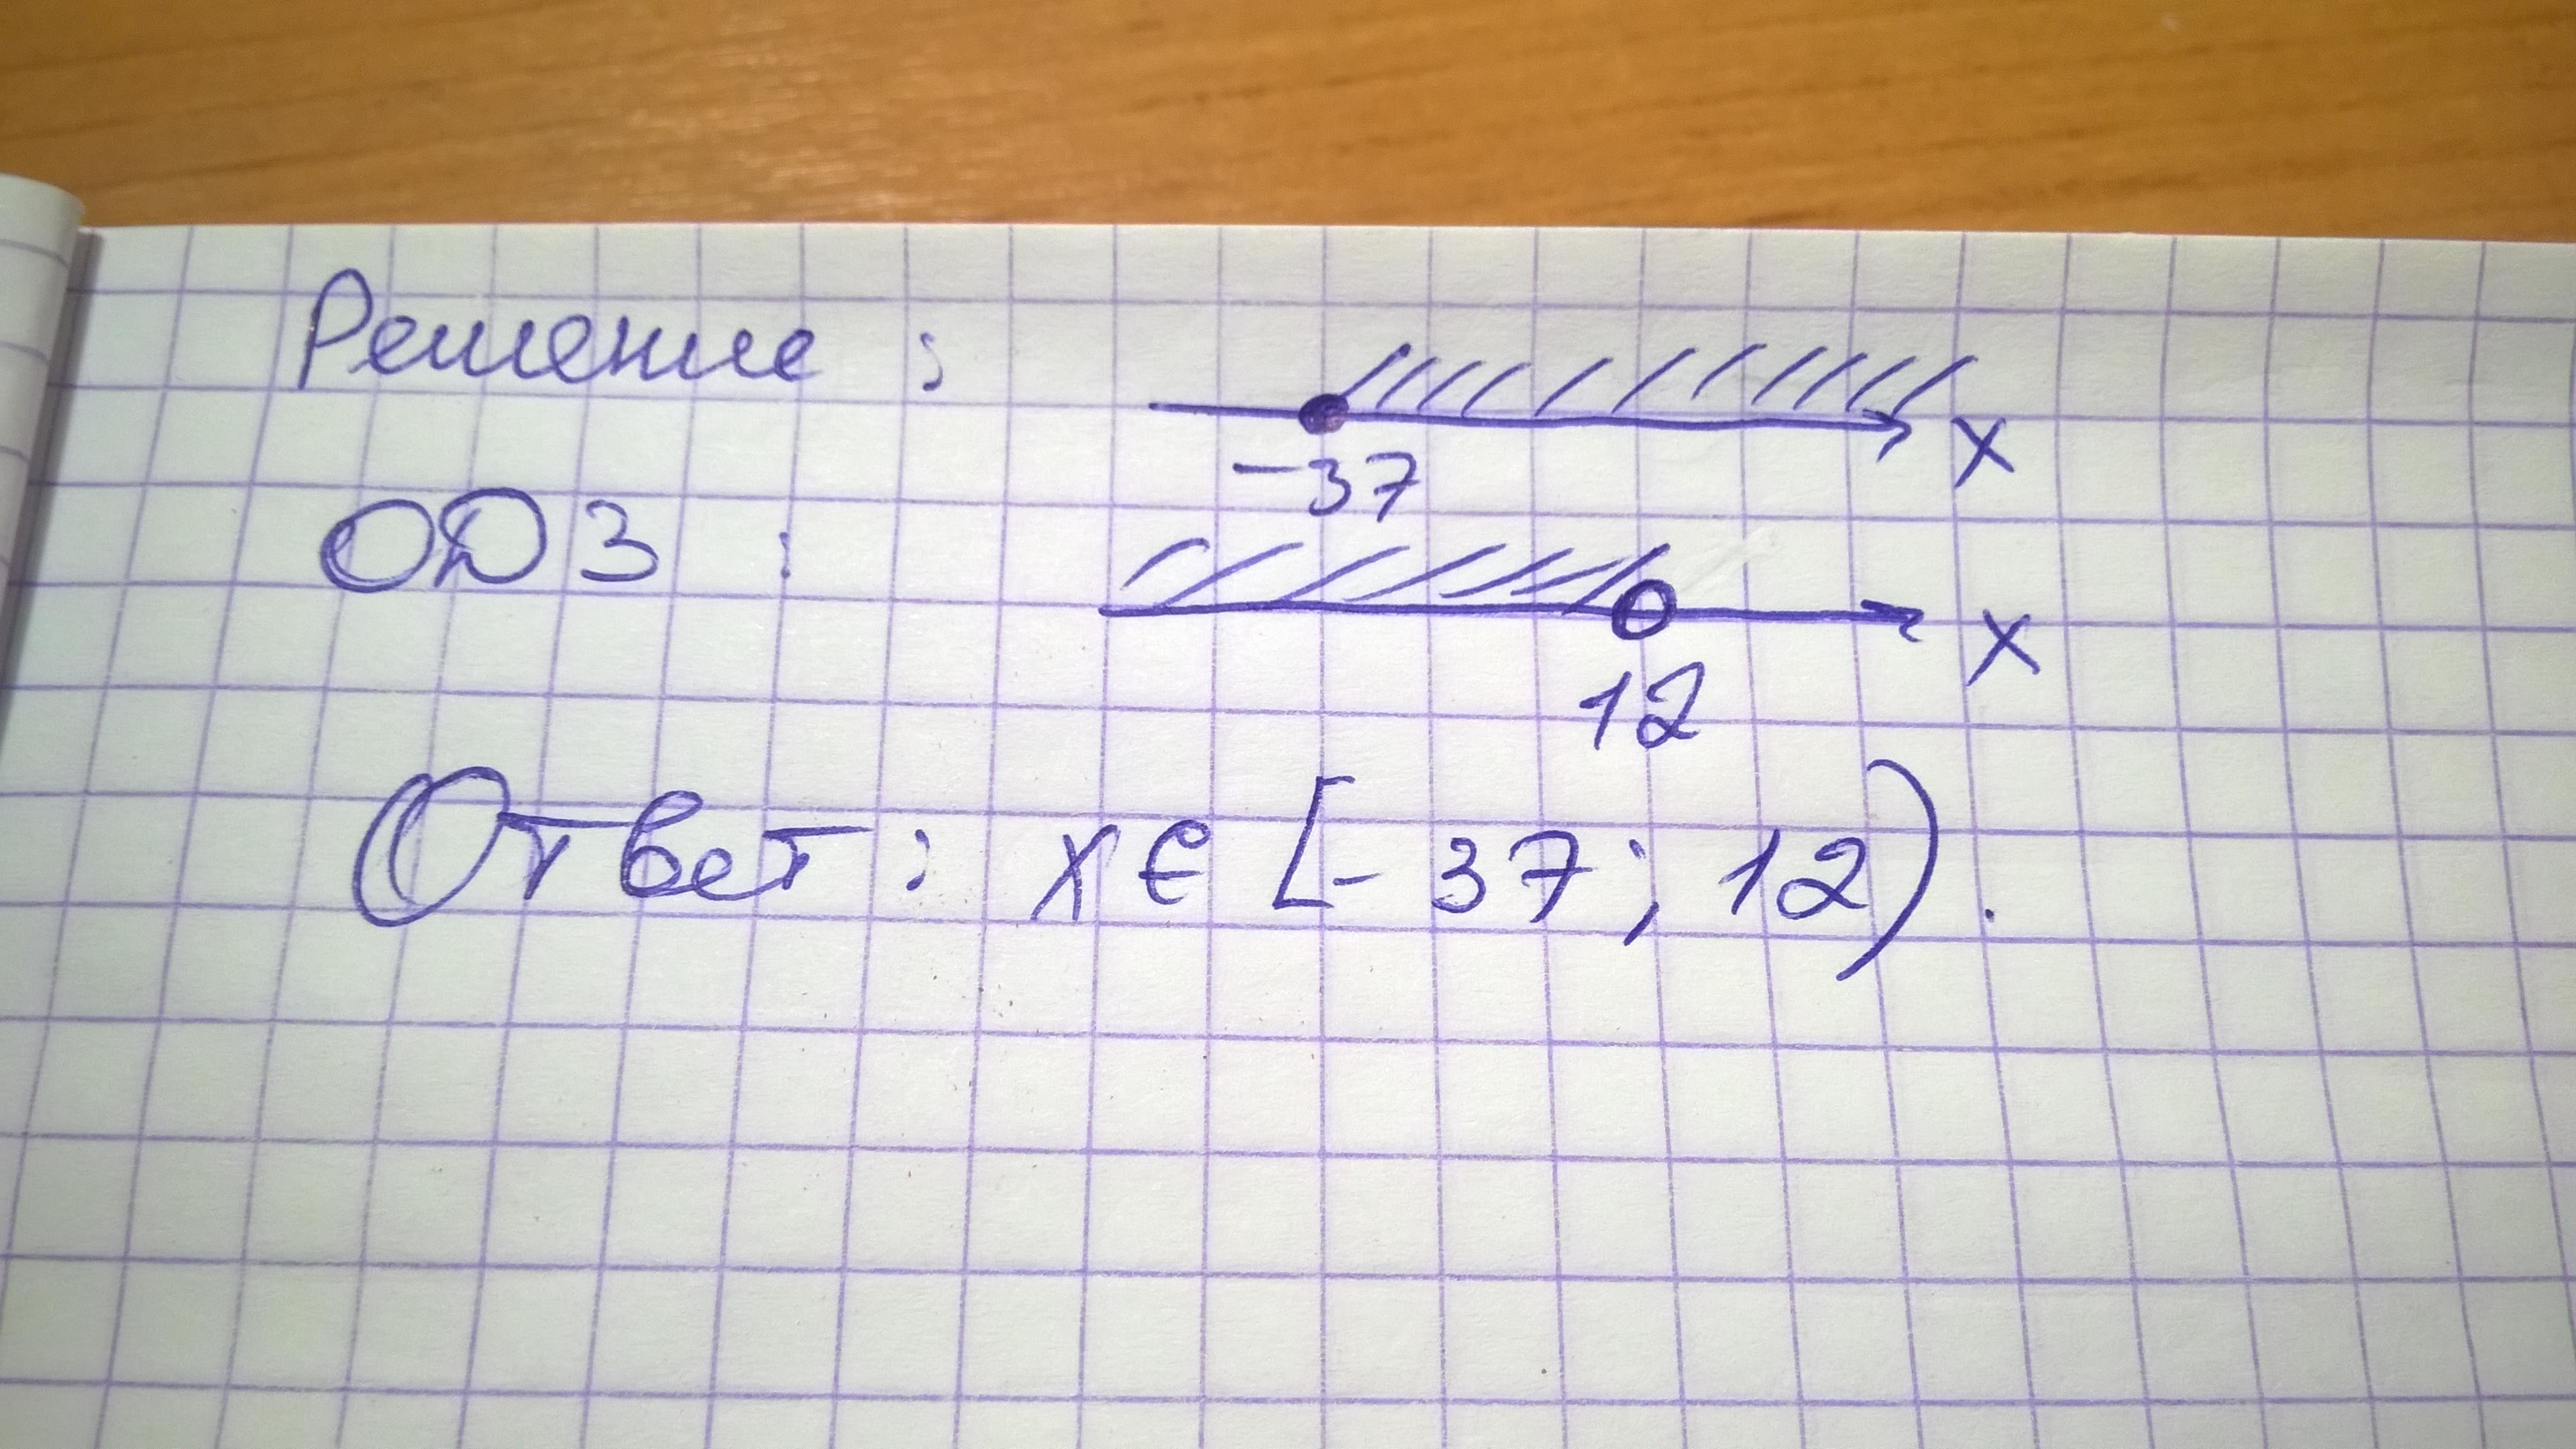 Решение :
x
-37
ОДЗ :
x
12
Ответ: x∈ [- 37; 12).